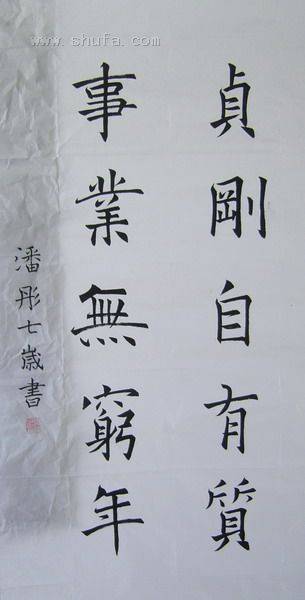 www.shufa.com
貞剛自有質
事業無窮年
潘彤七歲書